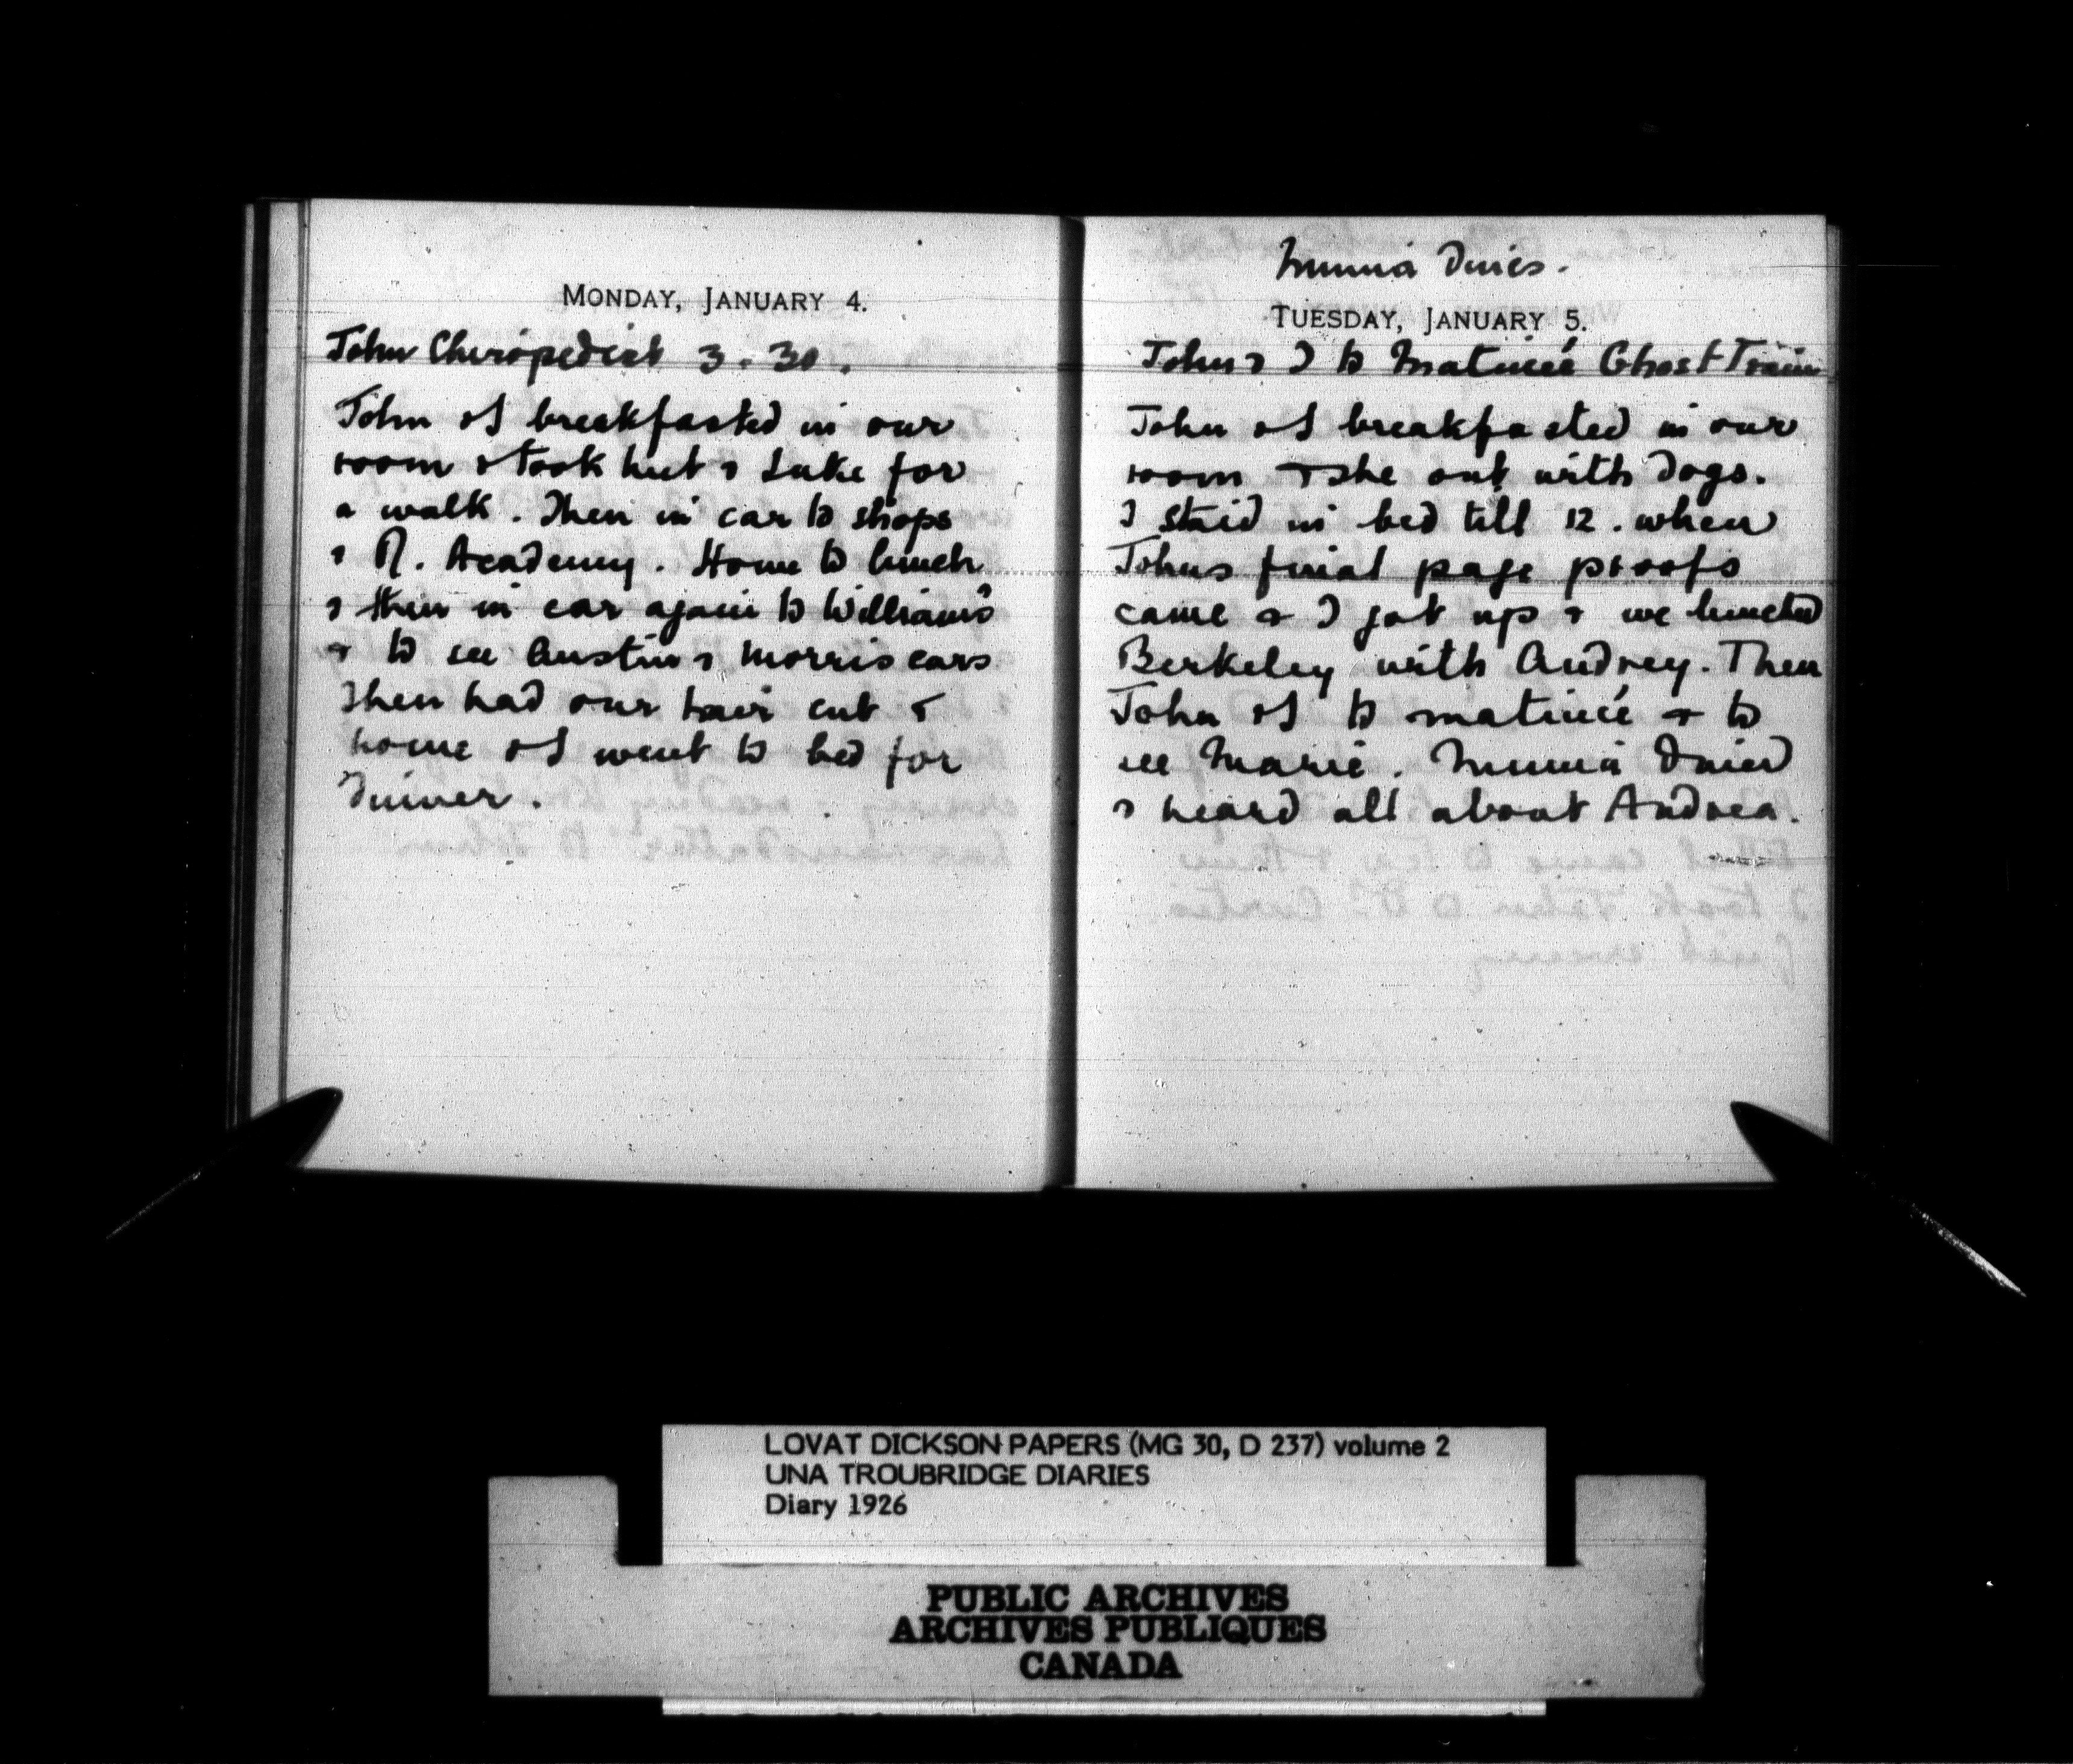 MONDAY, JANUARY 4.
John Chiropodist 3.30.
John & I breakfasted in our
room & took & Luke for
a walk. Then in car to shops
& R. Academy. Home to lunch
& then in car again to Williams
& to see Austin & Morris cars
Then had our hair cut &
home & I went to bed for
dinner.
Minna dines.
TUESDAY, JANUARY 5.
John & I to Matinée Ghost Train
John & I breakfasted in our
room & she out with dogs.
I staid in bed till 12. when
Johns final page proofs
came & I got up & we lunched
Berkeley with Audrey. Then
John & I to matinée & to
see Marie. Minna dined
& heard all about Andrea.
LOVAT DICKSON PAPERS (MG 30, D 237) volume 2
UNA TROUBRIDGE DIARIES
Diary 1926
PUBLIC ARCHIVES
ARCHIVES PUBLIQUES
CANADA